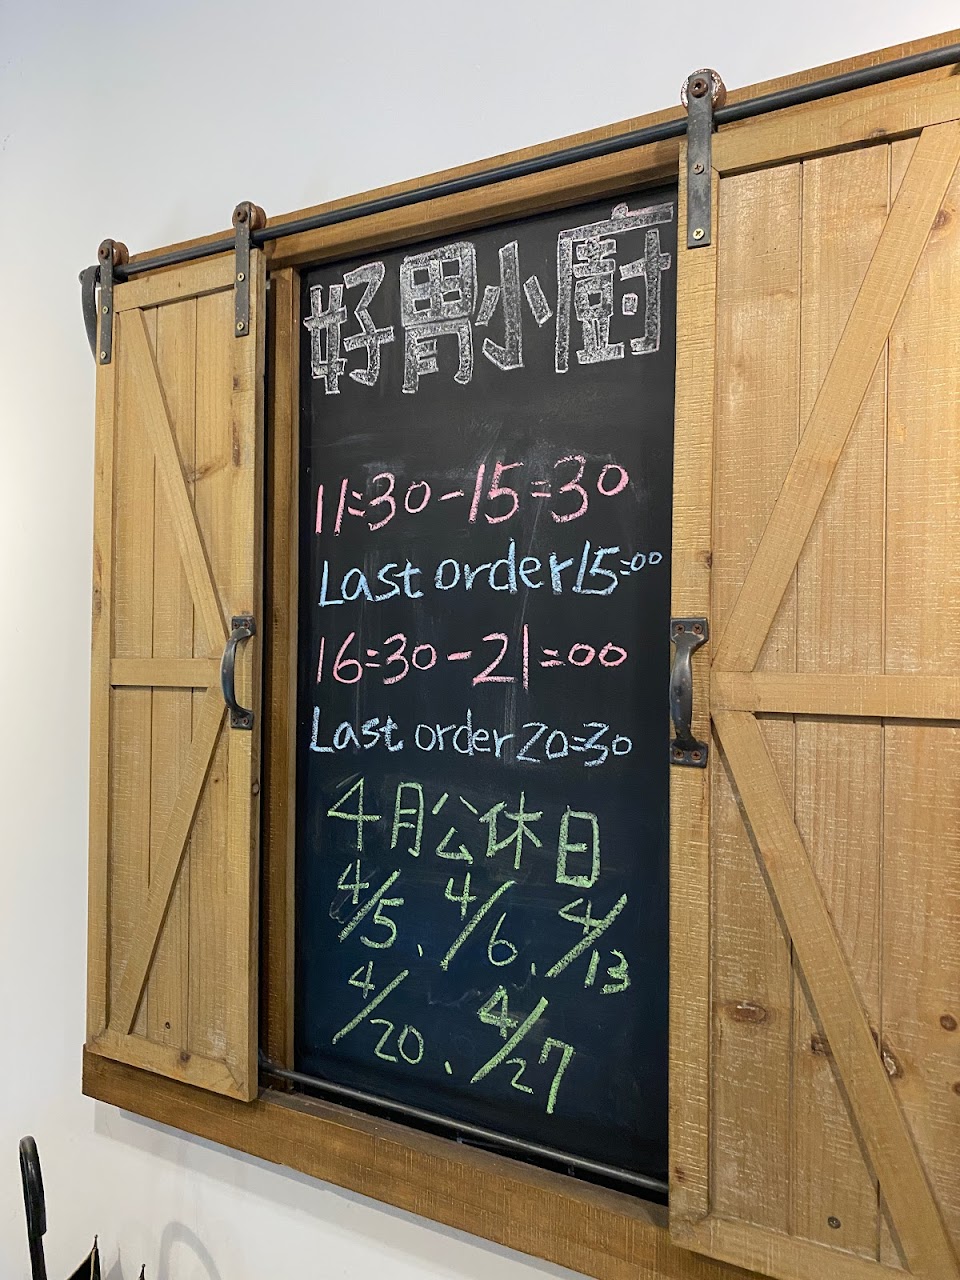 好胃小廚
11:30-15:30
Last order 15:00
16:30-21:00
Last order 20:30
4月公休日
4/5、4/6、4/13
4/20、4/27